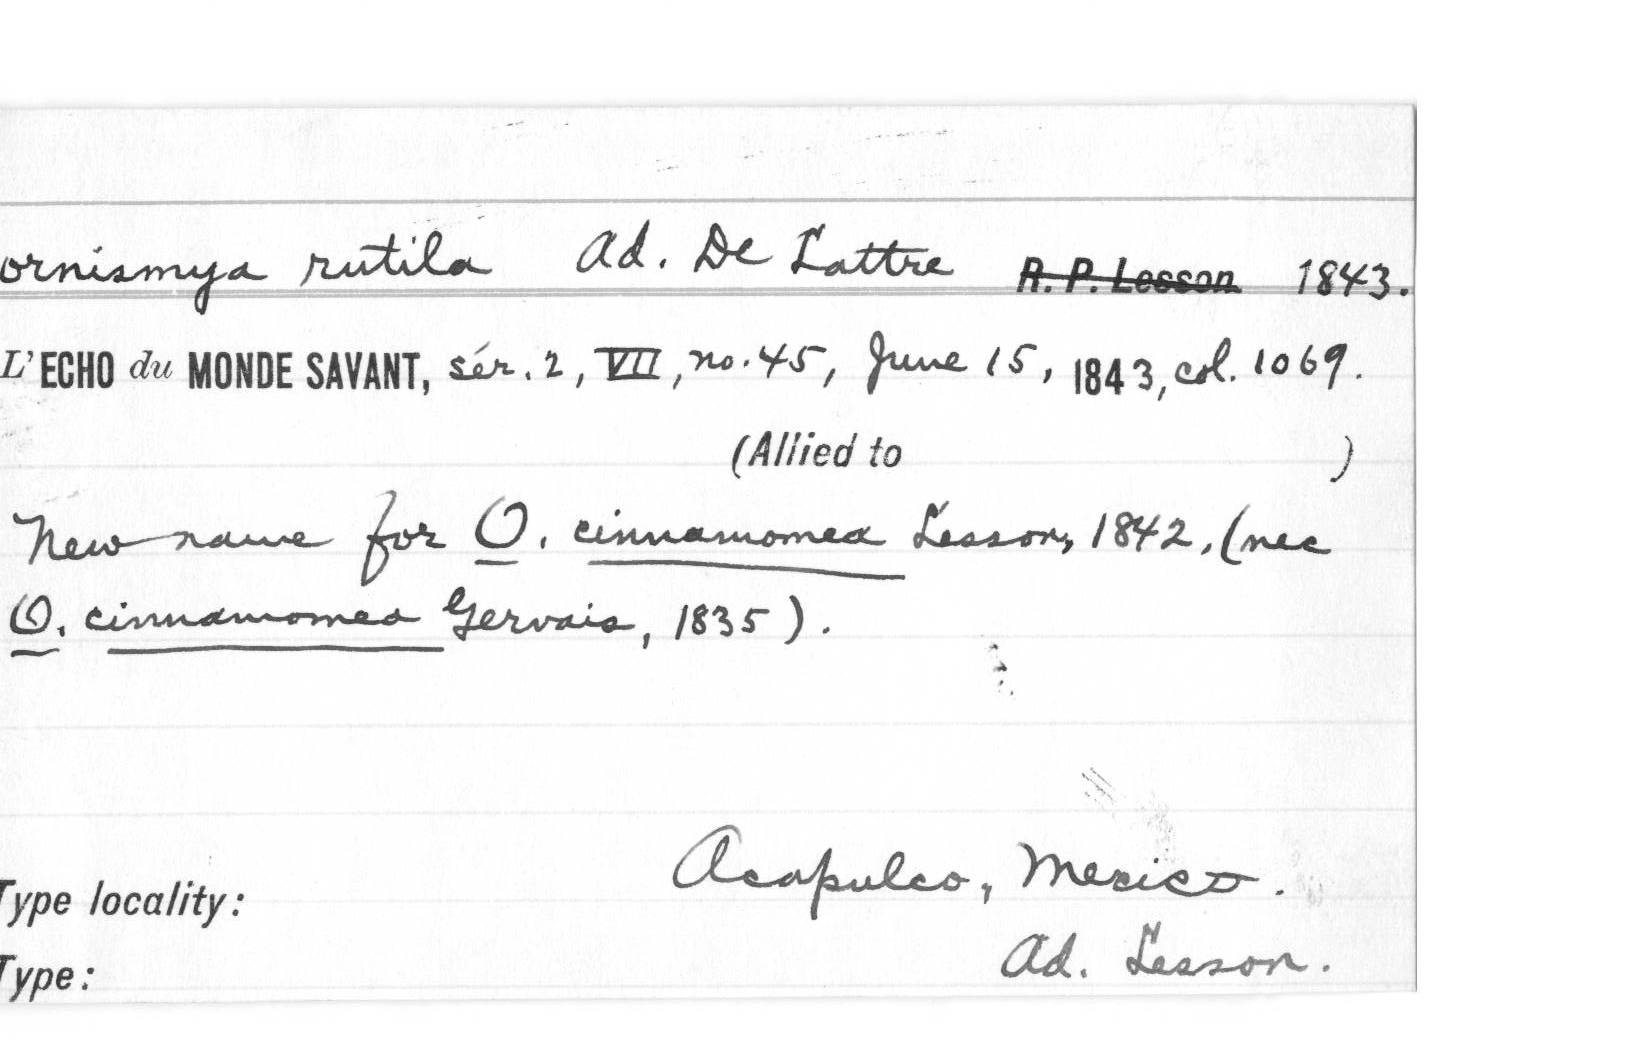 ornismya rutila Ad. De Lattre R. P. Lesson 1843.
L'ECHO du MONDE SAVANT, sér. 2, VII, no. 45, June 15, 1843, col. 1069.
(Allied to )
New name for O. cinnamomea Lesson, 1842, (nec
O. cinnamomea Gervais, 1835).
Acapulco, Mexico.
Type locality:
Ad. Lesson.
Type: